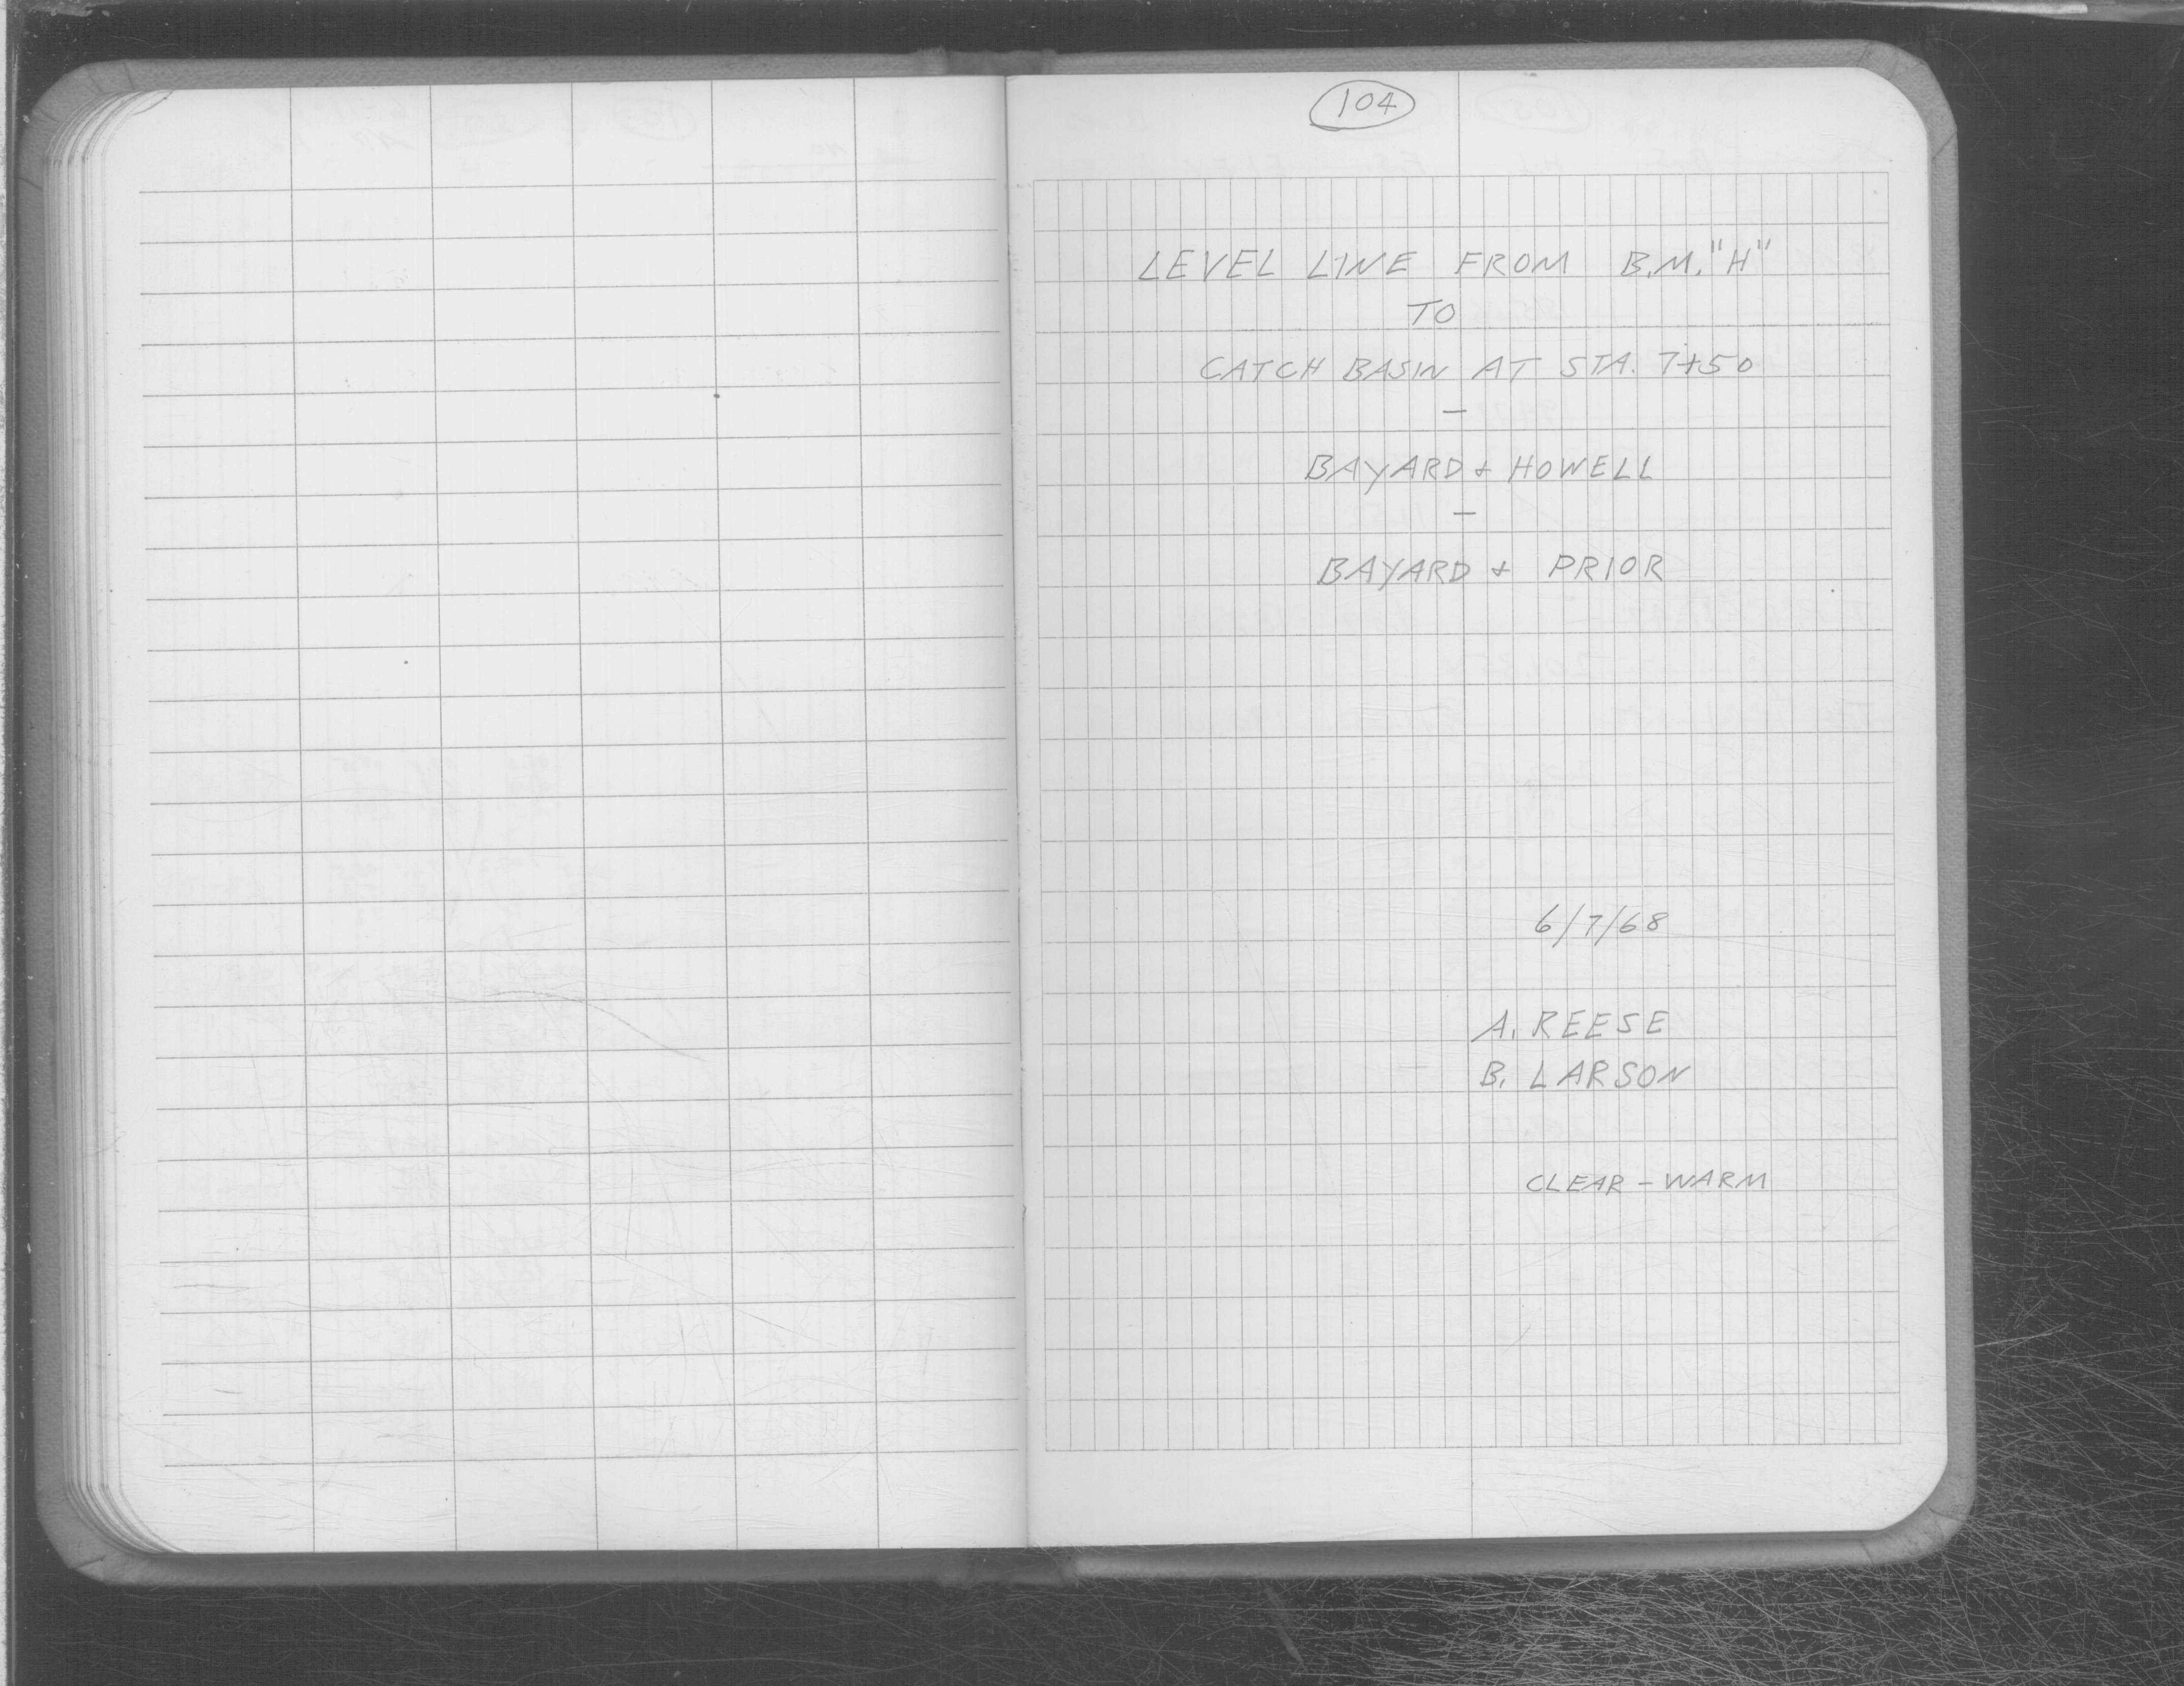 104
LEVEL LINE FROM B.M. "H"
TO
CATCH BASIN AT STA. 7+50
—
BAYARD & HOWELL
—
BAYARD & PRIOR
6/7/68
A. REESE
B. LARSON
CLEAR - WARM